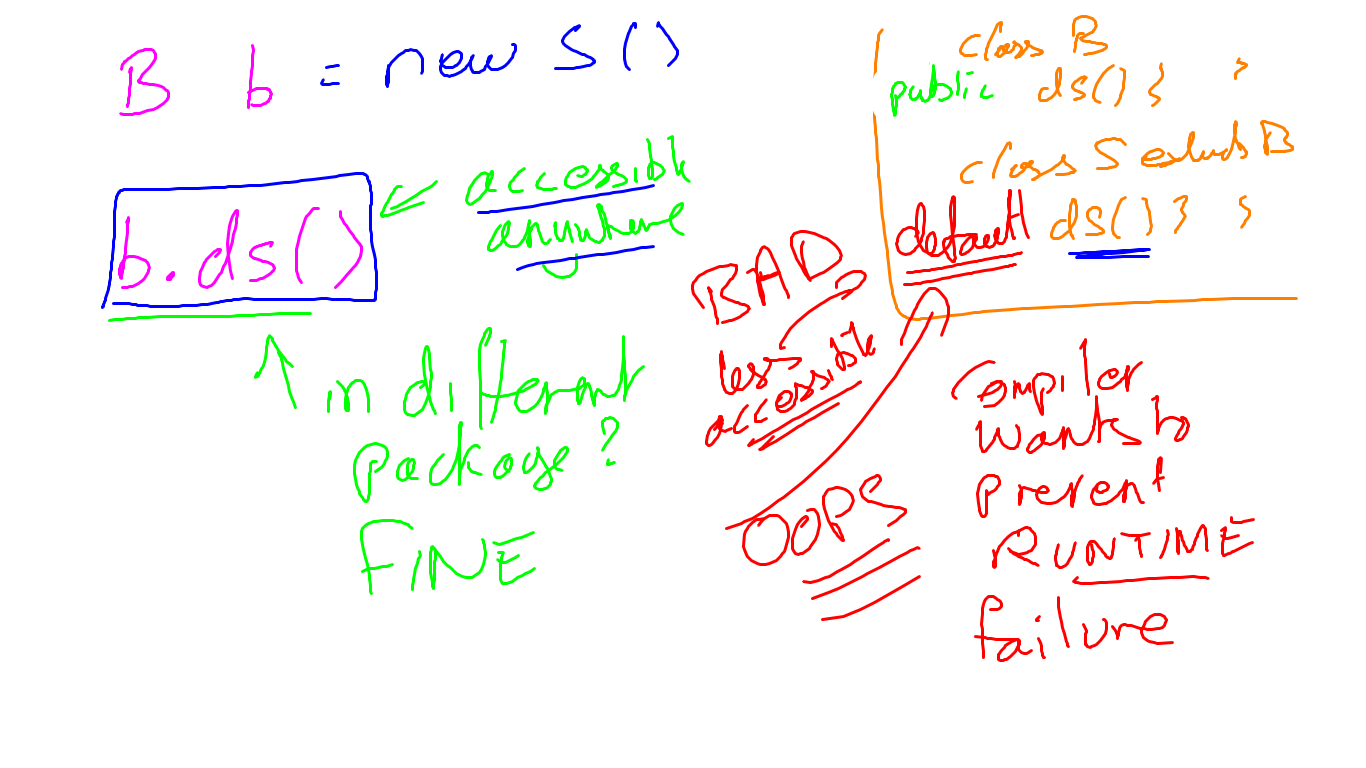 B b = new S()
b.ds()
accessible
anywhere
in different
package?
FINE
class B
public ds() { }
class S extends B
default ds() } }
BAD
less
accessible
OOPS
Compiler
wants to
prevent
RUNTIME
failure